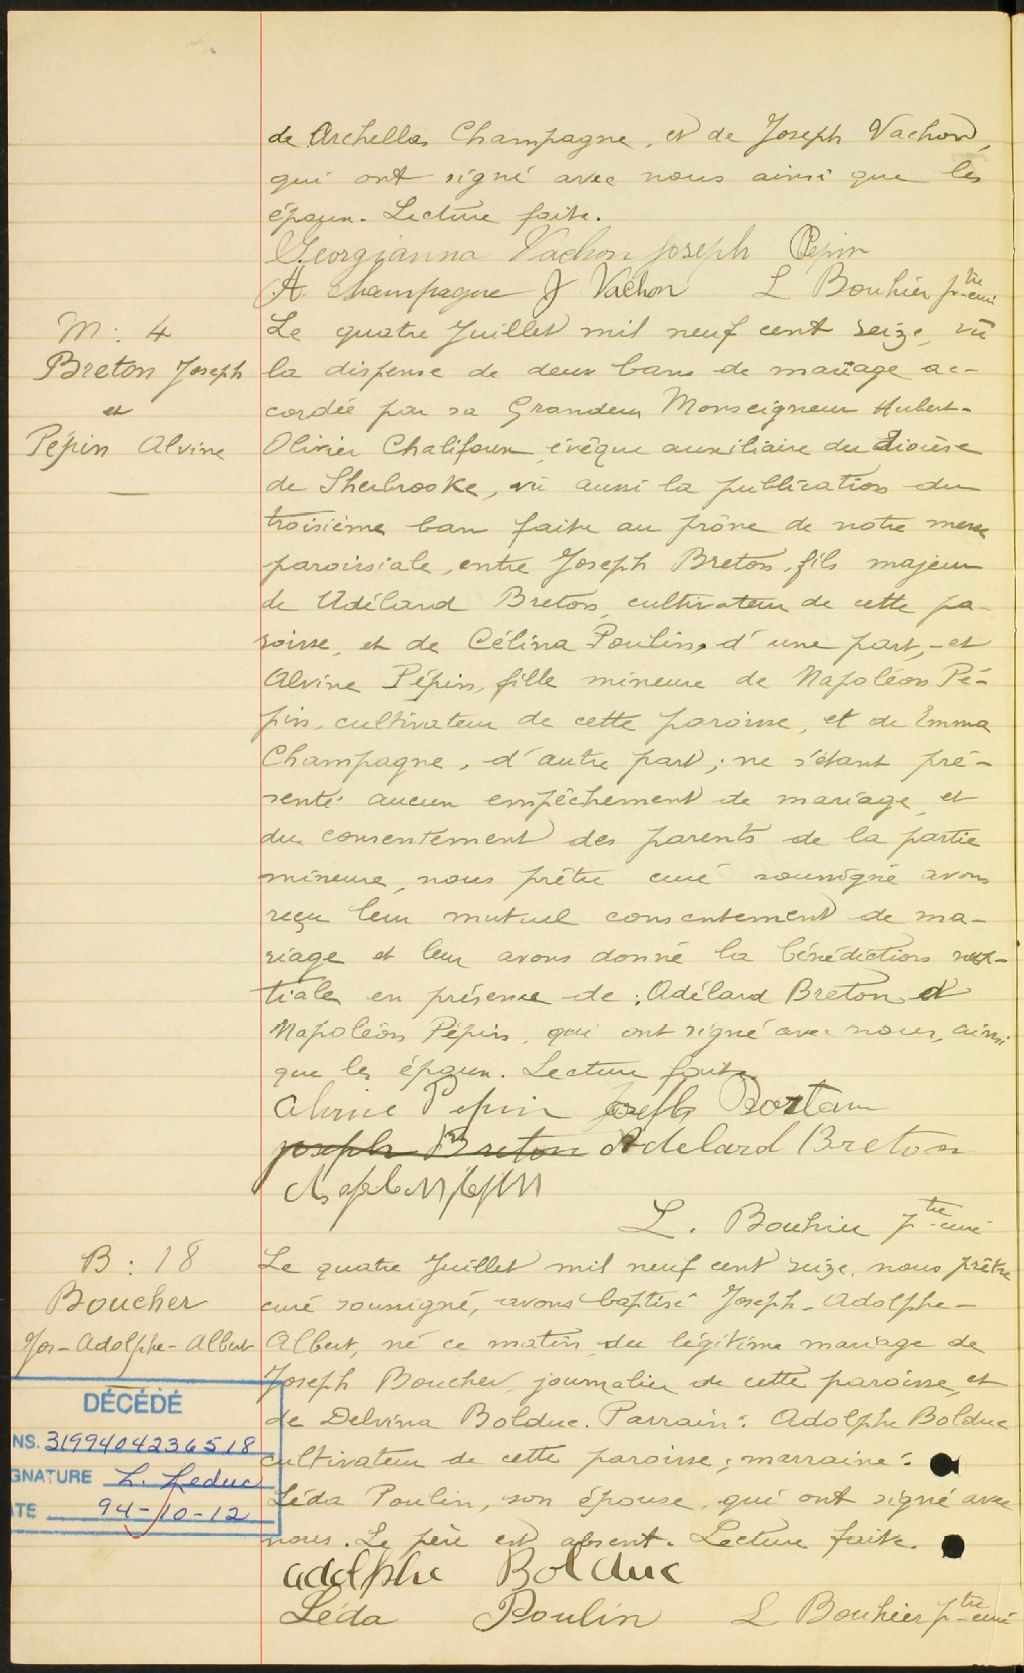 de Archellas Champagne, et de Joseph Vachon,
qui ont signé avec nous ainsi que les
époux. Lecture faite.
Georgianna Vachon Joseph Pepin
A Champagne J Vachon L Bouhier ptre-curé
M: 4
Breton Joseph
et
Pépin Alvine
Le quatre Juillet mil neuf cent seize, vû
la dispense de deux bans de mariage ac-
cordée par sa Grandeur Monseigneur Hubert-
Olivier Chalifoux évêque auxiliaire du diocèse
de Sherbrooke, vû aussi la publication du
troisième ban faite au prône de notre messe
paroissiale, entre Joseph Breton, fils majeur
de Adélard Breton, cultivateur de cette pa-
roisse, et de Célina Poulin, d'une part, et
Alvine Pépin, fille mineure de Napoléon Pé-
pin, cultivateur de cette paroisse, et de Emma
Champagne, d'autre part; ne s'étant pré-
senté aucun empêchement de mariage, et
du consentement des parents de la partie
mineure, nous prêtre curé soussigné avons
reçu leur mutuel consentement de ma-
riage et leur avons donné la bénédiction nup-
tiale en présence de: Adélard Breton et
Napoléon Pépin, qui ont signé avec nous, ainsi
que les époux. Lecture faite.
Alvine Pepin Joseph
Joseph Breton Adelard Breton
L. Bouhier ptre-curé
B: 18
Boucher
Jos-Adolphe-Albert
Le quatre Juillet mil neuf cent seize, nous prêtre
curé soussigné, avons baptisé Joseph-Adolphe-
Albert, né ce matin du légitime mariage de
Joseph Boucher, journalier de cette paroisse, et
de Delvina Bolduc. Parrain: Adolphe Bolduc
cultivateur de cette paroisse; marraine:
Léda Poulin, son épouse, qui ont signé avec
nous. Le père est absent. Lecture faite.
Adolphe Bolduc
Léda Poulin L Bouhier ptre-curé
DÉCÉDÉ
NS. 3199404236518
GNATURE L. Leduc
TE 94-10-12